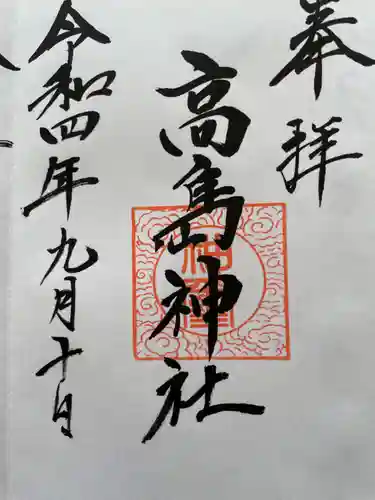 奉拝
高島神社
令和四年九月十日